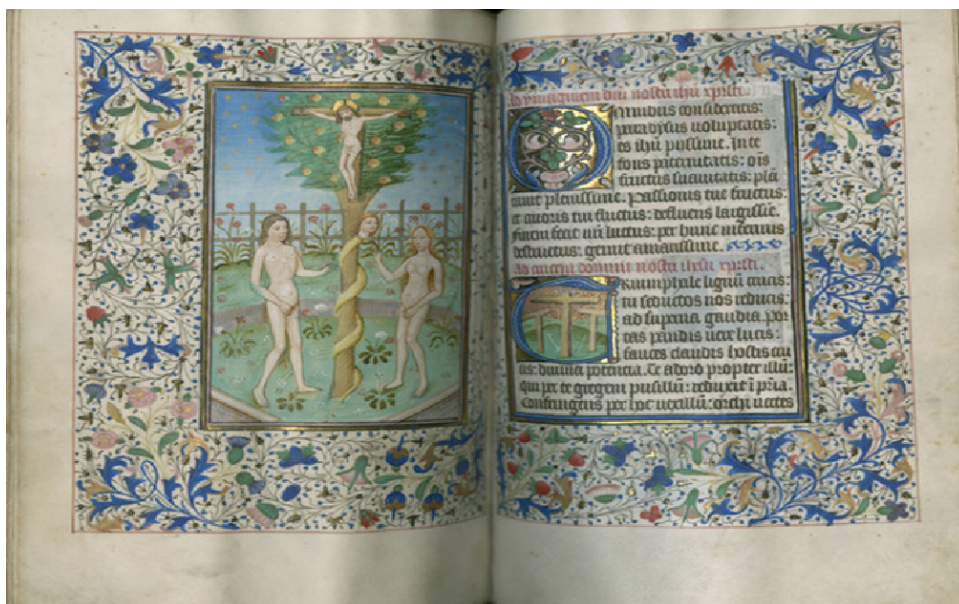 Ad ymaginem dni nostri ihu xpristi.
Omnibus consideratis:
paradysus voluptatis:
es ihu piissime. In te
fons : ois
fructus suavitatis: plā
tavit plenissime. Passionis tue fructus
et cruoris tui fluctus: defluens largissie.
Finem fecit luctus: per hunc
destructus: gemit
Ad crucem domini nostri ihesu xpristi.
Triumphale lignū crucis
tu seductos nos reducis:
ad superna gaudia. por
tas pandis vere lucis:
fauces claudis hostis cru
cis: divina potencia. Te adoro propter illū:
qui per te gregem pusillū: reduxit ī pria.
Confringens per hoc vexillū: orchi vectes